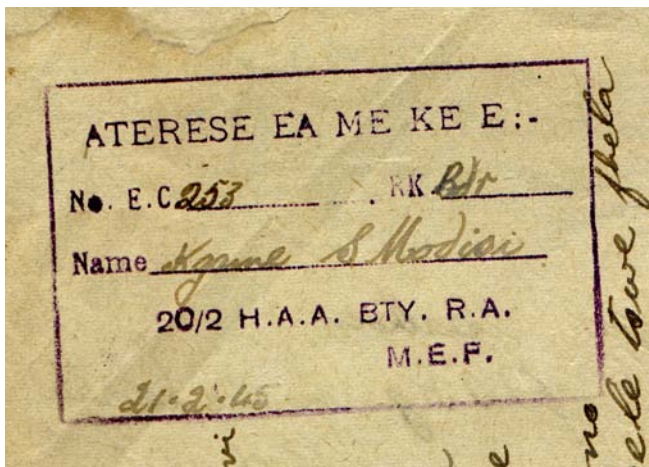 ATERESE EA ME KE E:-
No. E.C 253 RK Bdr
Name Kgame S Modisi
20/2 H.A.A. BTY. R.A.
M.E.F.
21.2.45